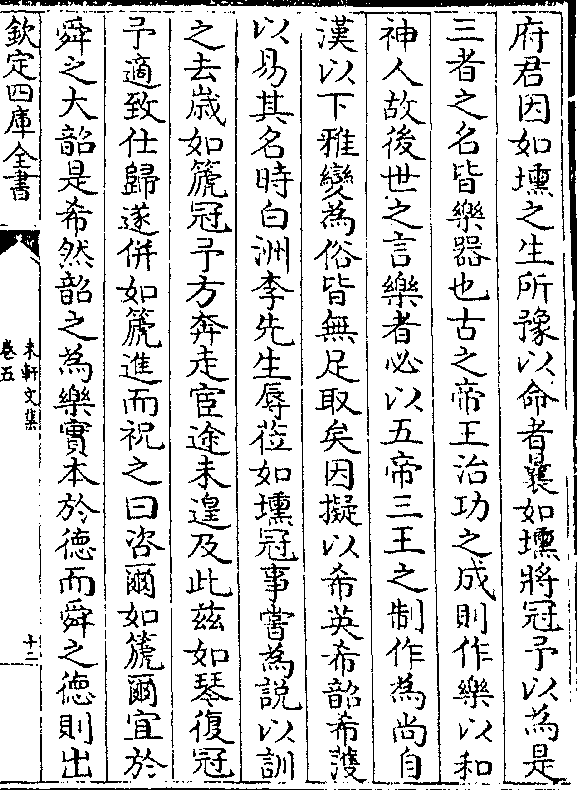 府君因如壎之生所豫以命者曩如壎將冠予以為是
三者之名皆樂器也古之帝王治功之成則作樂以和
神人故後世之言樂者必以五帝三王之制作為尚自
漢以下雅變為俗皆無足取矣因擬以希英希韶希頀
以易其名時白洲李先生辱蒞如壎冠事嘗為説以訓
之去歳如箎冠予方奔走宦途未遑及此茲如琴復冠
予適致仕歸遂併如箎進而祝之曰咨爾如箎爾宜於
舜之大韶是希然韶之為樂實本於徳而舜之徳則出
欽定四庫全書
未軒文集
卷五
十二